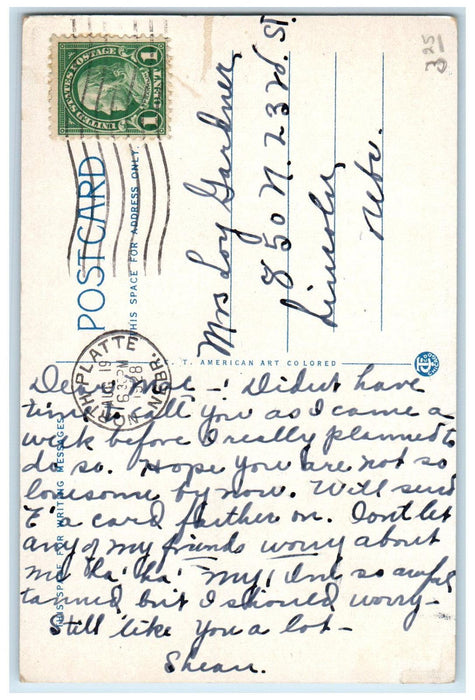 3 25
UNITED STATES POSTAGE
1 CENT 1
POSTCARD
THIS SPACE FOR ADDRESS ONLY.
Mrs Loy Gardner,
850 N. 23rd. St.
Lincoln,
Nebr.
NORTH PLATTE, NEBR.
AUG 19
630 PM
C. T. AMERICAN ART COLORED
THIS SPACE FOR WRITING MESSAGES
Dear Mae -! Didn't have
time to call you as I came a
week before I really planned to
do so. Hope you are not so
lonesome by now. Will send
E' a card farther on. Don't let
any of my friends worry about
me 'ha' 'ha' My! I'm so awful
tanned but I should worry-
Still like you a lot-